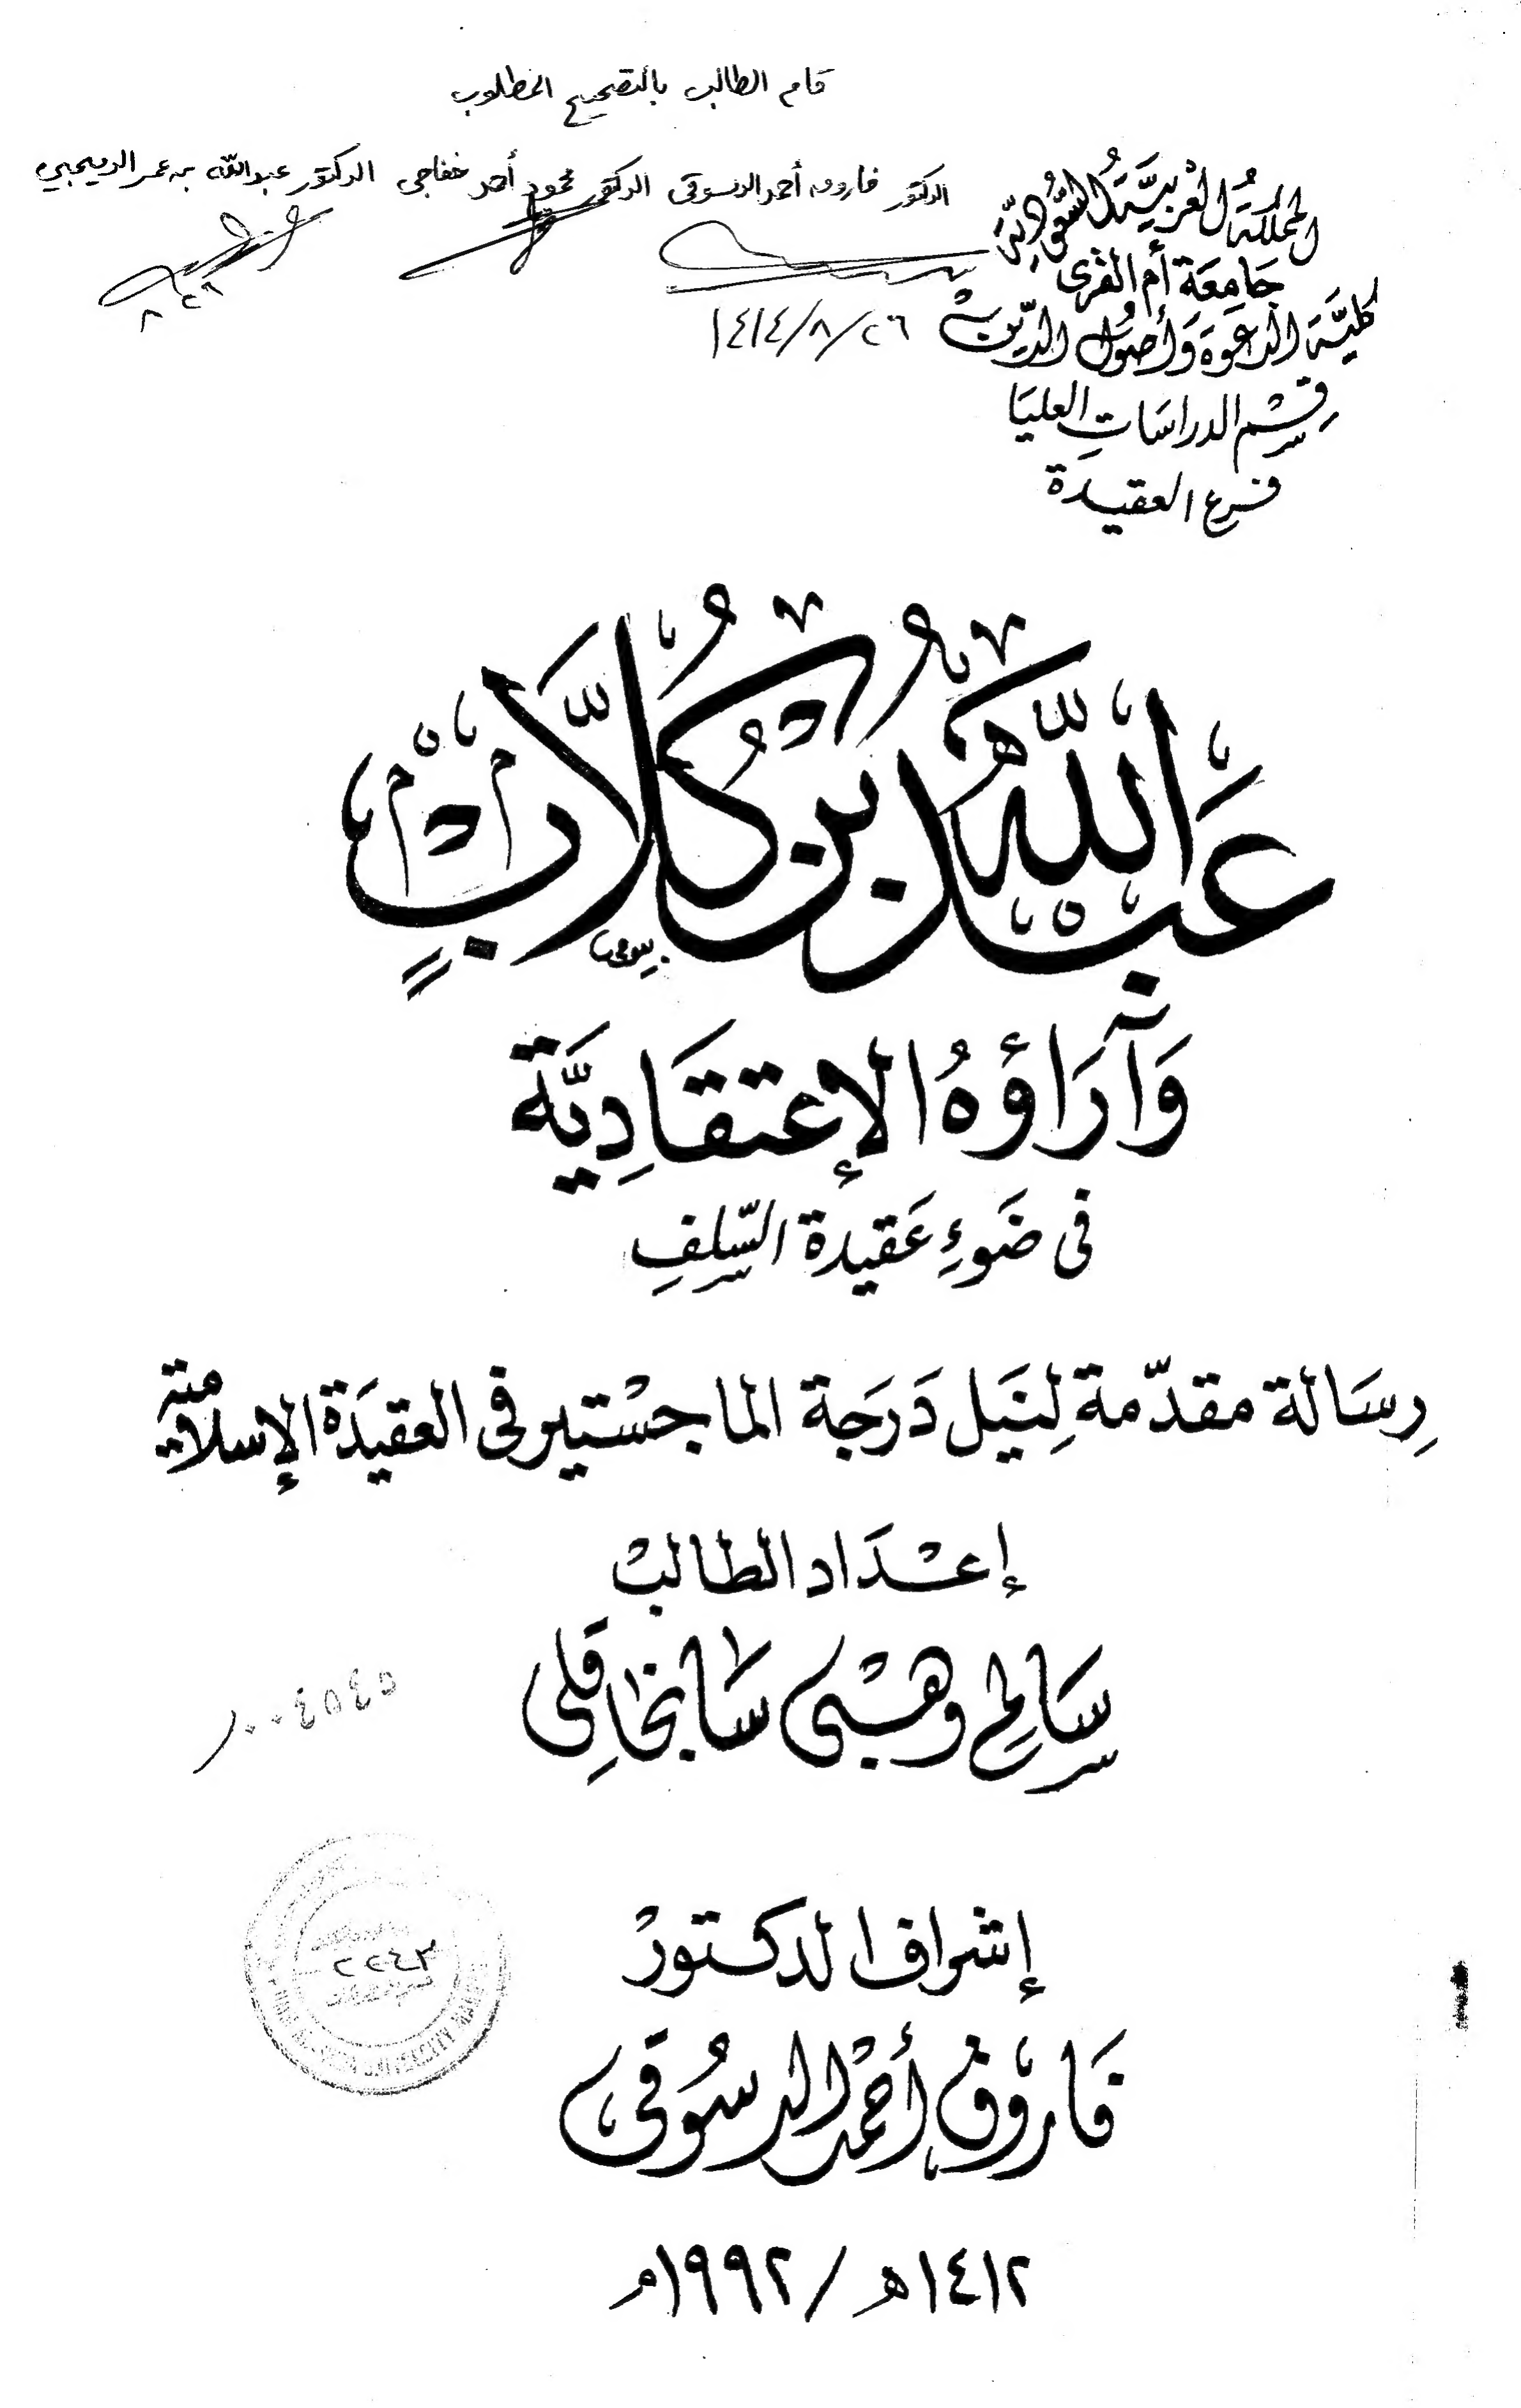 قام الطالب بالتصحيح المطلوب
الدكتور فاروق أحمد الدسوقى الدكتور محمود أحمد خفاجى الدكتور عبدالله بن عمر الدميجي
١٤١٤/٨/٢٦
المملكة العربية السعودية
جامعة أم القرى
كلية الدعوة وأصول الدين
قسم الدراسات العليا
فرع العقيدة
عَبدُ اللّه بن كُلَّابٍ
وَآرَاؤهُ الإعتقَادِيَّة
فى ضَوءِ عَقيدة السّلفِ
رِسَالة مقدّمة لِنَيل دَرَجَة الماجسْتير فى العقيدَة الإسلامية
إعْدَاد الطالبْ
سَالِم وهْبى سَانجَاقِلى
١٠٠٤٥٤٥
٢٢٤٣
إشراف الدكتورْ
فَاروق أحْمد الدسُوقى
١٤١٢ه / ١٩٩٢م